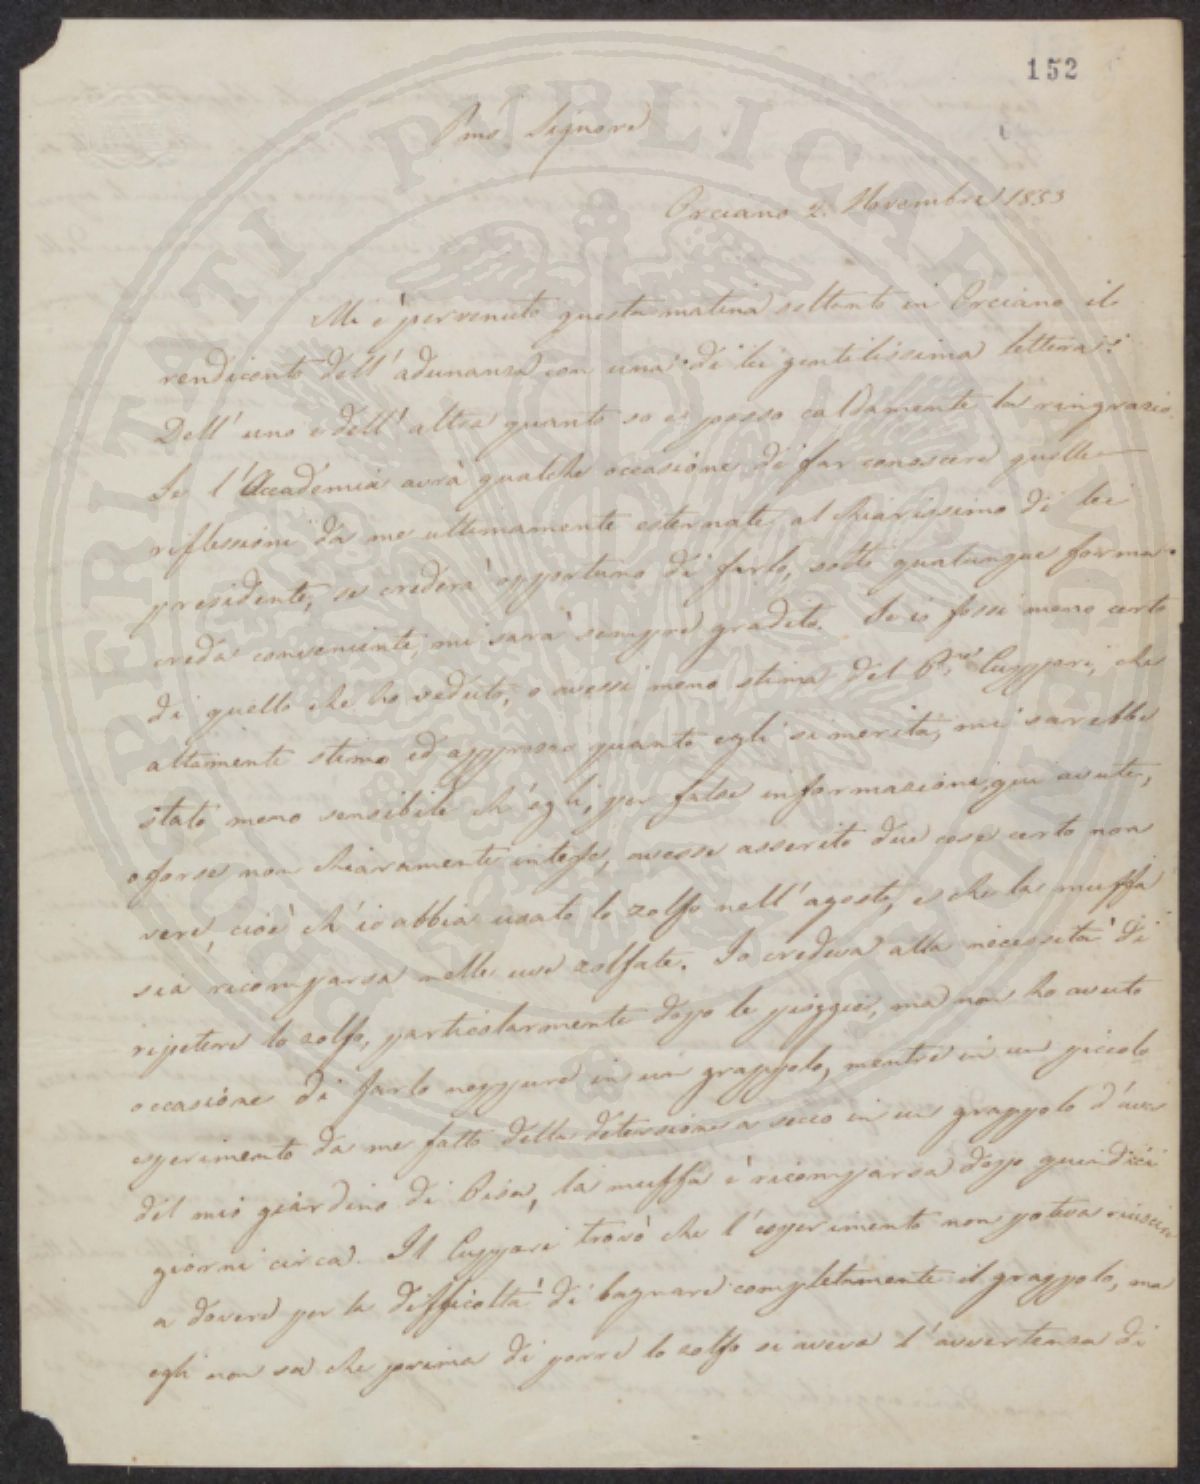 152
Pmo Signore
Orciano 2. Novembre 1853
Mi è pervenuto questa matina soltanto in Orciano il
rendiconto dell'adunansa con una di lei gentilissima lettera:
Dell'uno e dell'altra quanto so e posso caldamente la ringrazio.
Se l'Accademia avrà qualche occasione di far conoscere quelle
riflessioni da me ultimamente esternate al chiarissimo di lei
presidente, se crederà opportuno di farlo, sotto qualunque forma
creda conveniente, mi sarà sempre gradito. Se io fossi meno certo
di quello che ho veduto, o avessi meno stima del Cuppari, che
altamente stimo ed apprezzo quanto egli si merita, mi sarebbe
stato meno sensibile ch'egli, per false informazioni qui avute,
o forse non chiaramente intese, avesse asserito due cose certo non
vere, cioè ch'io abbia usato lo zolfo nell'agosto, e che la muffa
sia ricomparsa nelle uve zolfate. Io credeva alla necessità di
ripetere lo zolfo, particolarmente dopo le pioggie, ma non ho avuto
occasione di farlo neppure in un grappolo, mentre in un piccolo
esperimento da me fatto della detersione a secco in un grappolo d'uva
del mio giardino di Pisa, la muffa è ricomparsa dopo quindici
giorni circa. Il Cuppari trovò che l'esperimento non poteva riuscire
a dovere per la difficoltà di bagnare completamente il grappolo, ma
egli non sa che prima di porre lo zolfo si aveva l'avvertenza di
PROSPERITATI PUBLICAE AUGENDAE